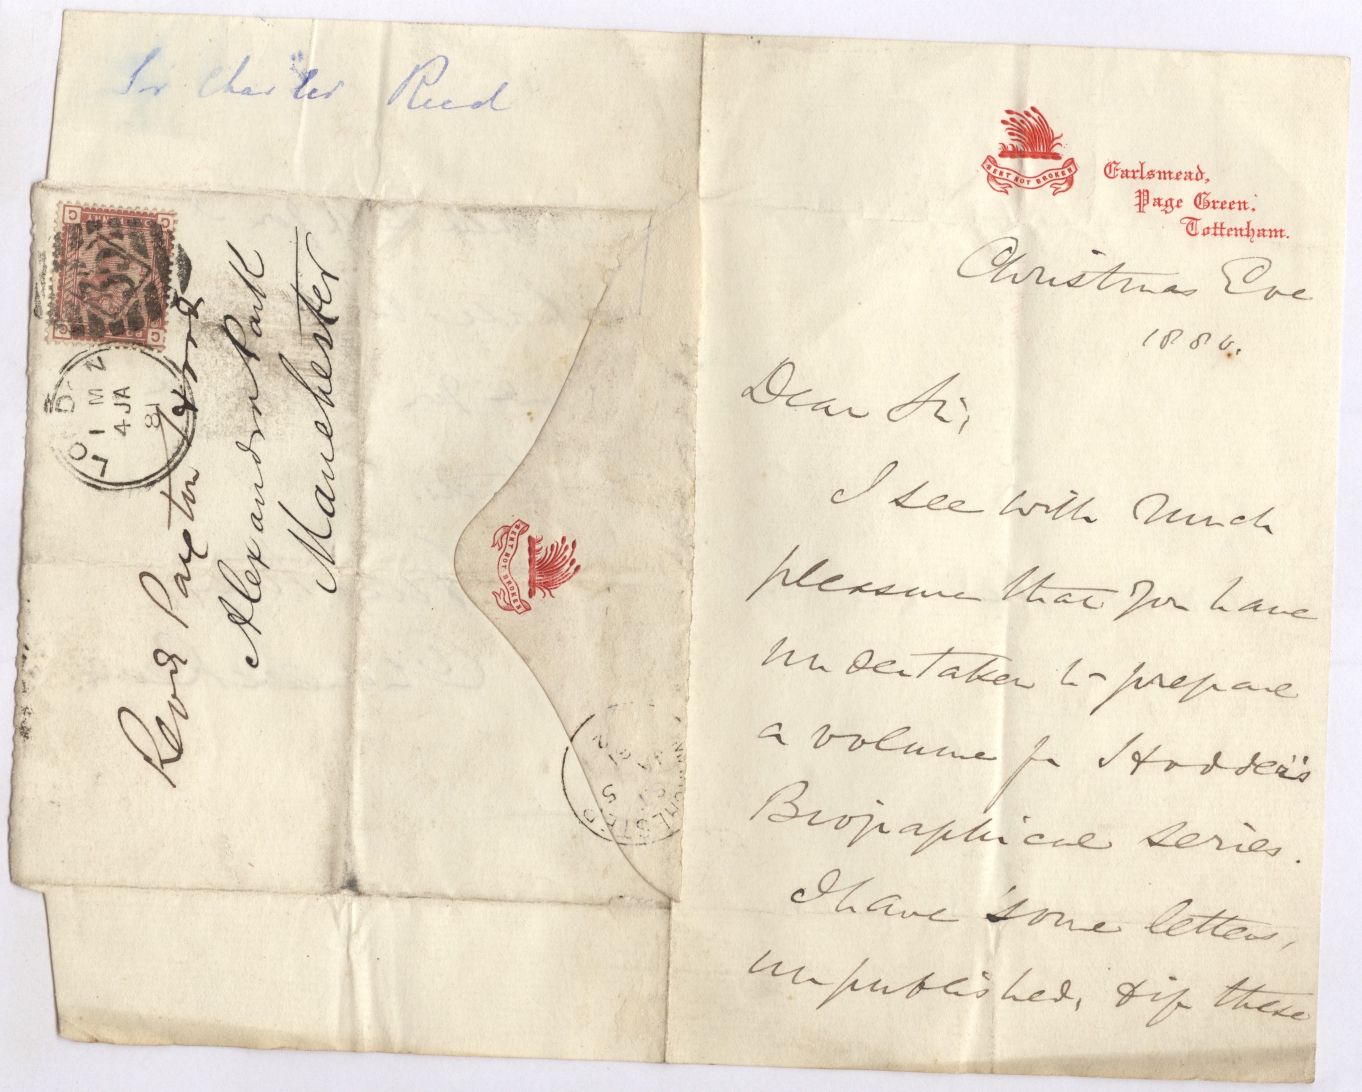 Sir Charles Reed
C
C
C
C
LONDON
1 M
4 JA
81
Revd Paxton Hood
Alexandra Park
Manchester
BENT NOT BROKEN
MANCHESTER
5
JA
81
BENT NOT BROKEN
Earlsmead,
Page Green,
Tottenham.
Christmas Eve
1880.
Dear Sir,
I see with much
pleasure that you have
undertaken to prepare
a volume for Hodder's
Biographical series.
I have some letters,
unpublished, & if these